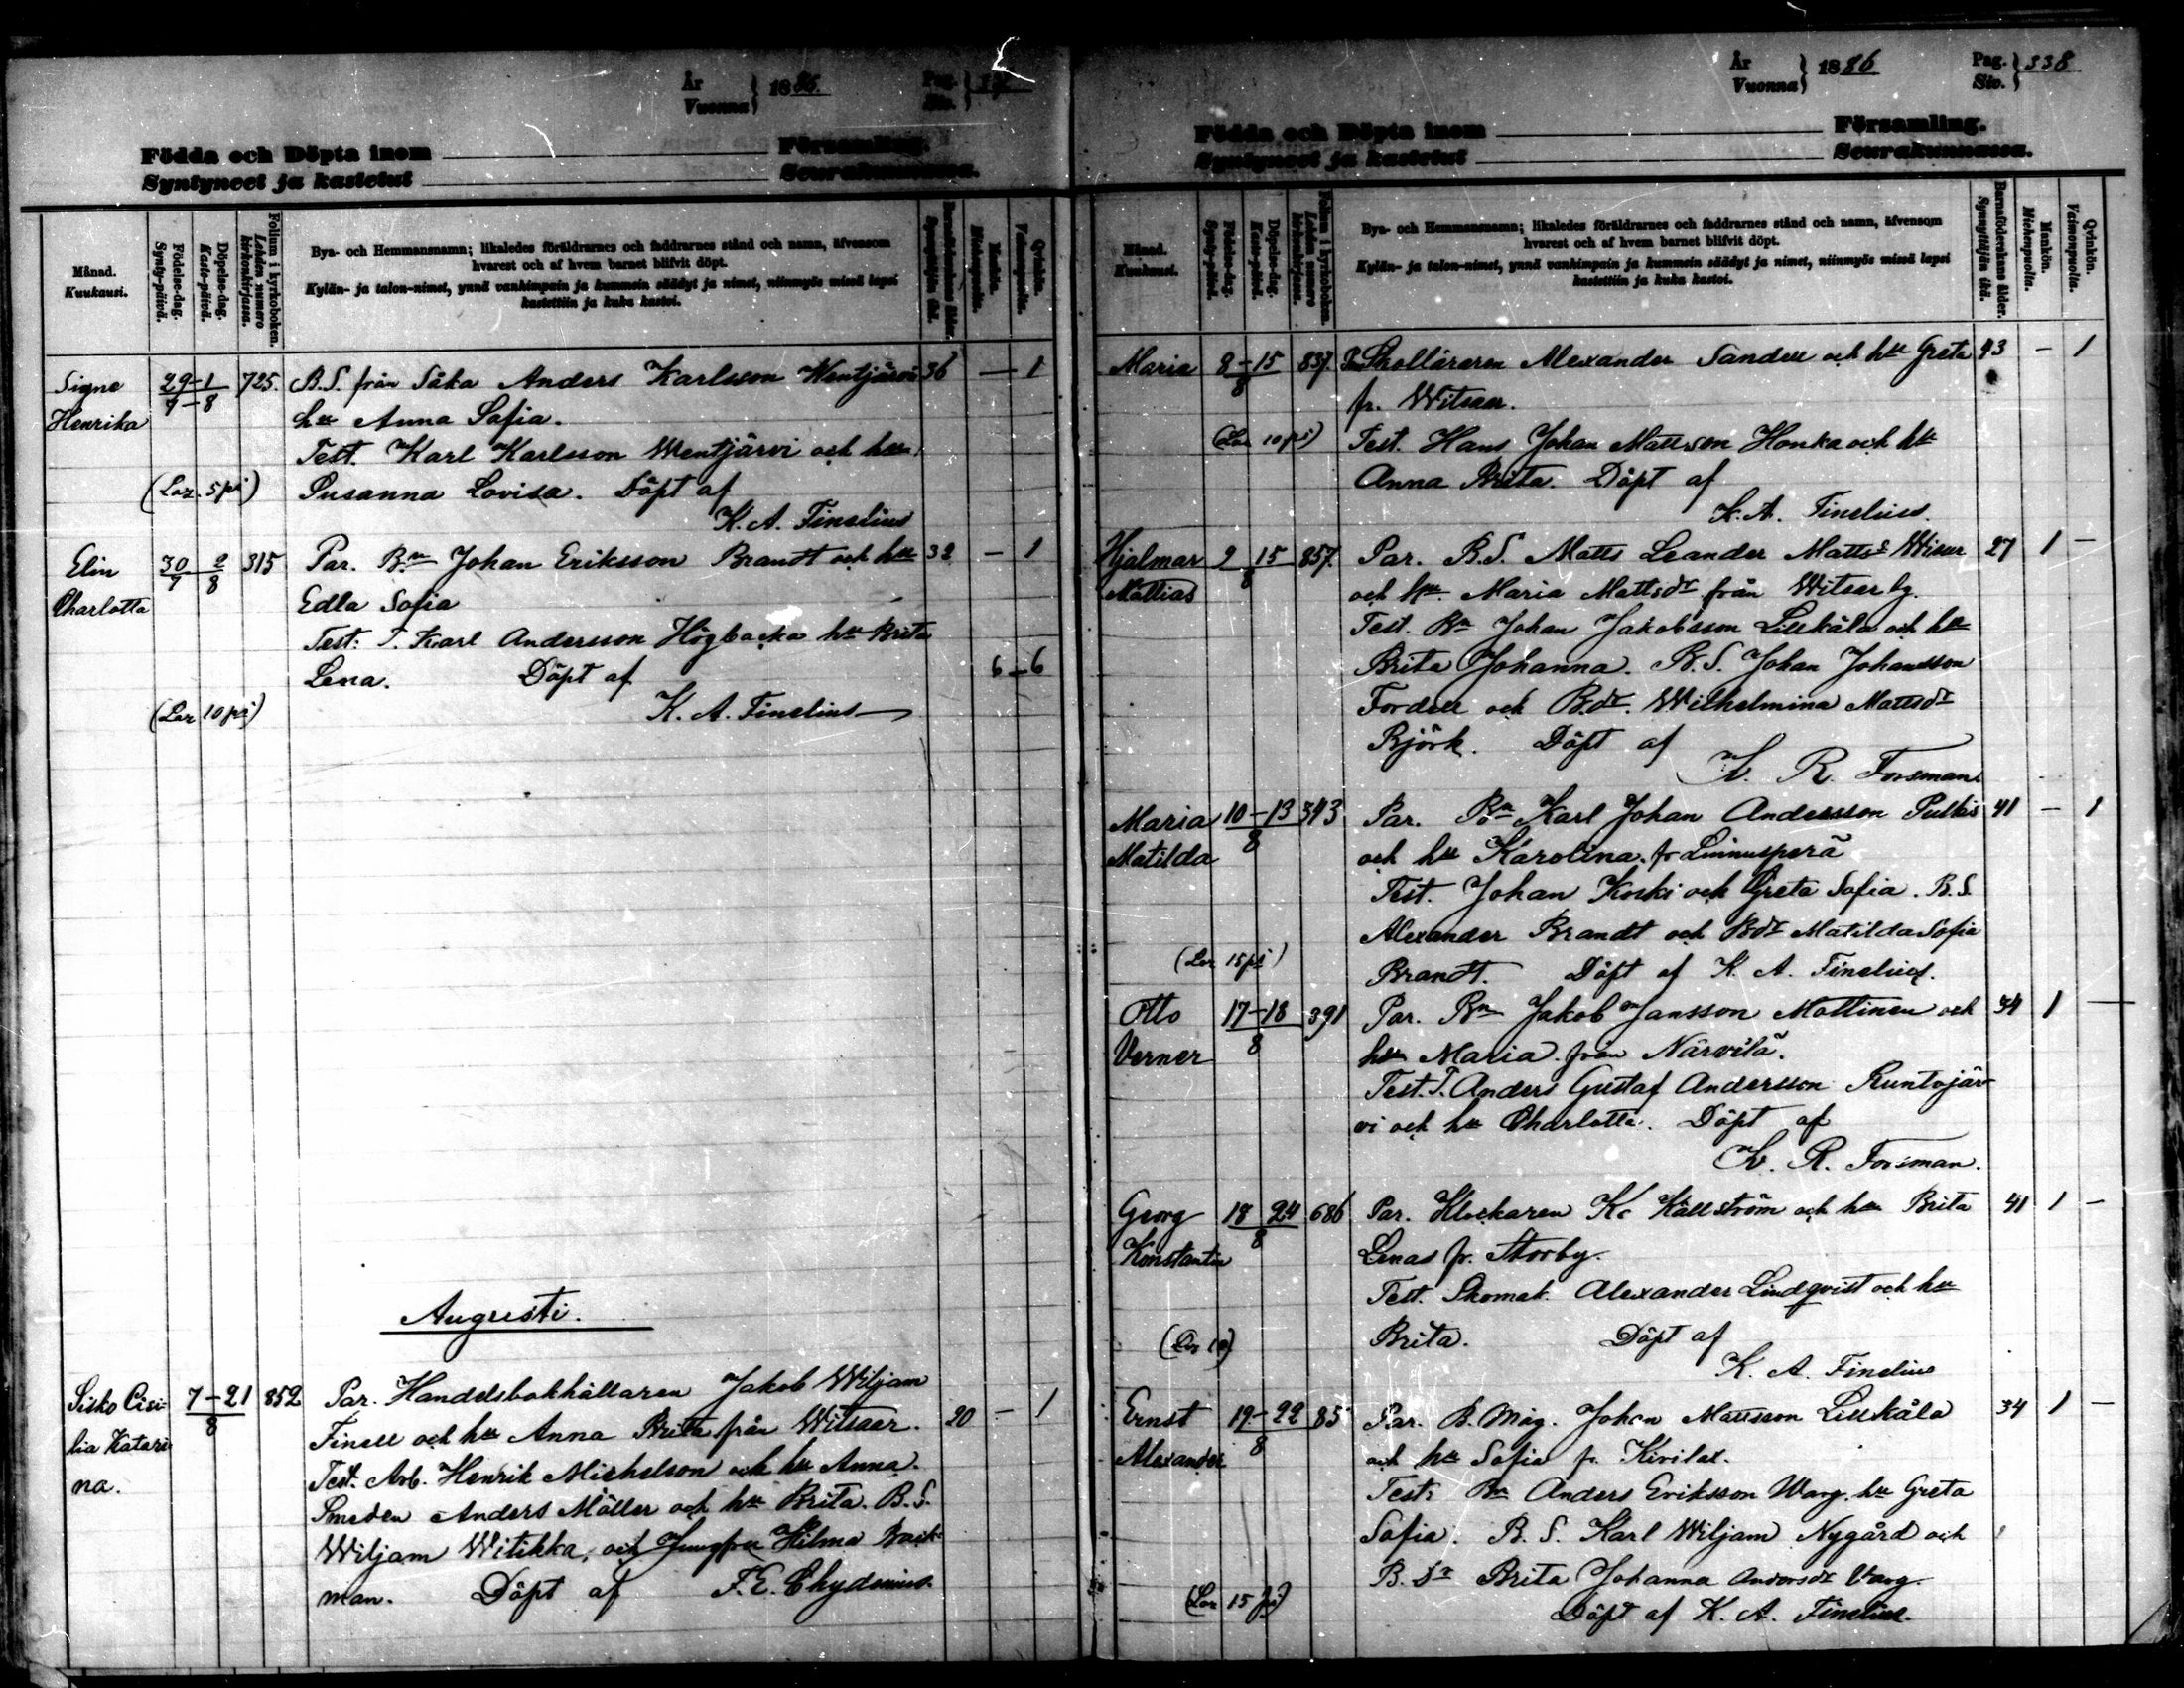 År
Vuonna } 1886. Pag.
Siv. }
Födda och Döpta inom Församling.
Syntyneet ja kastetut Seurakunnassa.
Månad.
Kuukausi.
Födelse-dag.
Synty-päivä.
Döpelse-dag.
Kaste-päivä.
Folium i kyrkoboken.
Lehden numero
kirkonkirjassa.
Bya- och Hemmansnamn; likaledes föräldrarnes och faddrarnes stånd och namn, äfvensom
hvarest och af hvem barnet blifvit döpt.
Kylän- ja talon-nimet, ynnä vanhimpain ja kummein säädyt ja nimet, niinmyös missä lapsi
kastettiin ja kuka kastoi.
Barnaföderskans ålder.
Synnyttäjän ikä.
Mankön.
Miehenpuolia.
Qvinkön.
Vaimonpuolia.
Signe 29-1 725. B.S. från Såka Anders Karlsson Wentjärvi 36 — 1
Henrika 7-8 hu Anna Sofia.
Test. Karl Karlsson Wentjärvi och hu
(Laz. 5 pi) Susanna Lovisa. Döpt af
K. A. Finelius
Elin 30 2 315 Par. Bn Johan Eriksson Brandt och hu 32 — 1
Charlotta 7 8 Edla Sofia
Test: T. Karl Andersson Högbacka hu Brita
Lena. Döpt af 6-6
(Laz 10 pi) K. A. Finelius
Augusti.
Sisko Cisi- 7-21 852 Par. Handelsbokhållaren Jakob Wiljam
lia Katari 8 Finell och hu Anna Brita från Witsaer. 20 — 1
na. Test. Arb. Henrik Michelson och hu Anna.
Smeden Anders Möller och hu Brita. B.S.
Wiljam Witikka, och Jungfru Hilma Back-
man. Döpt af F. E. Chydenius.
År
Vuonna } 1886 Pag.
Siv. } 338
Födda och Döpta inom Församling.
Syntyneet ja kastetut Seurakunnassa.
Månad.
Kuukausi.
Födelse-dag.
Synty-päivä.
Döpelse-dag.
Kaste-päivä.
Folium i kyrkoboken.
Lehden numero
kirkonkirjassa.
Bya- och Hemmansnamn; likaledes föräldrarnes och faddrarnes stånd och namn, äfvensom
hvarest och af hvem barnet blifvit döpt.
Kylän- ja talon-nimet, ynnä vanhimpain ja kummein säädyt ja nimet, niinmyös missä lapsi
kastettiin ja kuka kastoi.
Barnaföderskans ålder.
Synnyttäjän ikä.
Mankön.
Miehenpuolia.
Qvinkön.
Vaimonpuolia.
Maria 8-15 837. Skolläraren Alexander Sandell och hu Greta 43 — 1
8 fr. Witsaer.
(Laz 10 pi) Test. Hans Johan Mattsson Honka och hu
Anna Brita. Döpt af
K. A. Finelius.
Hjalmar 9 15 857. Par. B.S. Matts Leander Matts Wiser 27 1 —
Mattias 8 och hu. Maria Mattsdr från Witsar by.
Test. Bn Johan Jakobsson Lillkåla och hu
Brita Johanna. B.S. Johan Johansson
Fordell och B.dr. Wilhelmina Mattsdr
Björk. Döpt af
K. R. Forsman.
Maria 10-13 343 Par. Bn Karl Johan Andersson Pulkis 41 — 1
Matilda 8 och hu Karolina. fr Linnusperä
Test. Johan Koski och Greta Sofia. B.S.
Alexander Brandt och Bdr Matilda Sofia
(Laz 15 pi) Brandt. Döpt af K. A. Finelius.
Otto 17-18 391 Par. Bn Jakob Jansson Mattinen och 34 1 —
Verner 8 hu Maria. från Närvilä.
Test. T. Anders Gustaf Andersson Runtojär-
vi och hu Charlotta. Döpt af
K. R. Forsman.
Georg 18 24 686 Par. Klockaren K. Källström och hu Brita 41 1 —
Konstantin 8 Lenas fr. Storby.
Test. Skomak. Alexander Lindqvist och hu
Brita. Döpt af
K. A. Finelius
Ernst 19-22 85 Par. B. Måg. Johan Mattsson Lillkåla 34 1 —
Alexander 8 och hu Sofia fr. Kivilax.
Test: Bn Anders Eriksson Warg. hu Greta
Sofia. B.S. Karl Wiljam Nygård och
B. Dr Brita Johanna Andersdr Varg.
(Laz 15 pi) Döpt af K. A. Finelius.